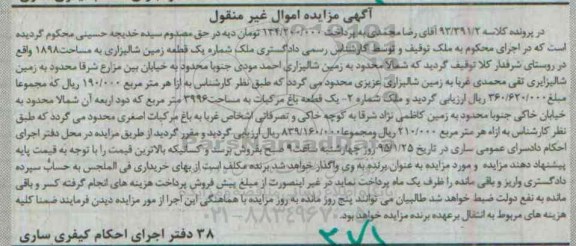 آگهی مزایده اموال غیر منقول
در پرونده کلاسه ۹۲/۳۹۱/۲ آقای رضا محمدی به پرداخت ۱۳۴/۲۰۰/۰۰۰ تومان دیه در حق مصدوم سیده خدیجه حسینی محکوم گردیده
است که در اجرای محکوم به ملک توقیف و توسط کارشناس رسمی دادگستری ملک شماره یک قطعه زمین شالیزاری به مساحت ۱۸۹۸ واقع
در روستای شرفدار کلا توقیف گردید که شمالا محدود به زمین شالیزاری احمد مودی جنوبا محدود به خیابان بین مزارع شرقا محدود به زمین
شالیزاری تقی محمدی غربا به زمین شالیزاری عزیزی محدود می گردد که طبق نظر کارشناس به ازا هر متر مربع ۱۹۰/۰۰۰ ریال که مجموعا
مبلغ ۳۶۰/۶۲۰/۰۰۰ ریال ارزیابی گردید و ملک شماره ۲- یک قطعه باغ مرکبات به مساحت ۳۹۹۶ متر مربع که دود اربعه آن شمالا محدود به
خیابان خاکی جنوبا محدود به زمین کاظمی نژاد شرقا به کوچه خاکی و تصرفاتی اشخاص غربا به باغ مرکبات اصغری محدود می گردد که طبق
نظر کارشناس به ازاء هر متر مربع ۲۱۰/۰۰۰ ریال ومجموعا ۸۳۹/۱۶۰/۰۰۰ ریال ارزیابی گردید و مقرر گردید از طریق مزایده در محل دفتر اجرای
احکام دادسرای عمومی ساری در تاریخ ۹۵/۱/۲۵ چهارشنبه ساعت ۹ صبح بفروش برسد. از کسیکه بالاترین قیمت را با توجه به قیمت پایه
پیشنهاد دهند مزایده و مورد مزایده به عنوان برنده به وی واگذار خواهد شد برنده مکلف است از بهای خریداری فی المجلس به حساب سپرده
دادگستری واریز و باقی مانده را ظرف یک ماه پرداخت نماید در غیر اینصورت از مبلغ پیش فروش پرداخت هزینه های انجام گرفته کسر و باقی
مانده به نفع دولت ضبط خواهد شد طالبیان می توانند پنج روز مانده به روز مزایده با هماهنگی این اجرا از مور مزایده دیدن فرمایند ضمنا کلیه
هزینه های مربوط به انتقال برعهده برنده مزایده خواهد بود.
۳۸ دفتر اجرای احکام کیفری ساری